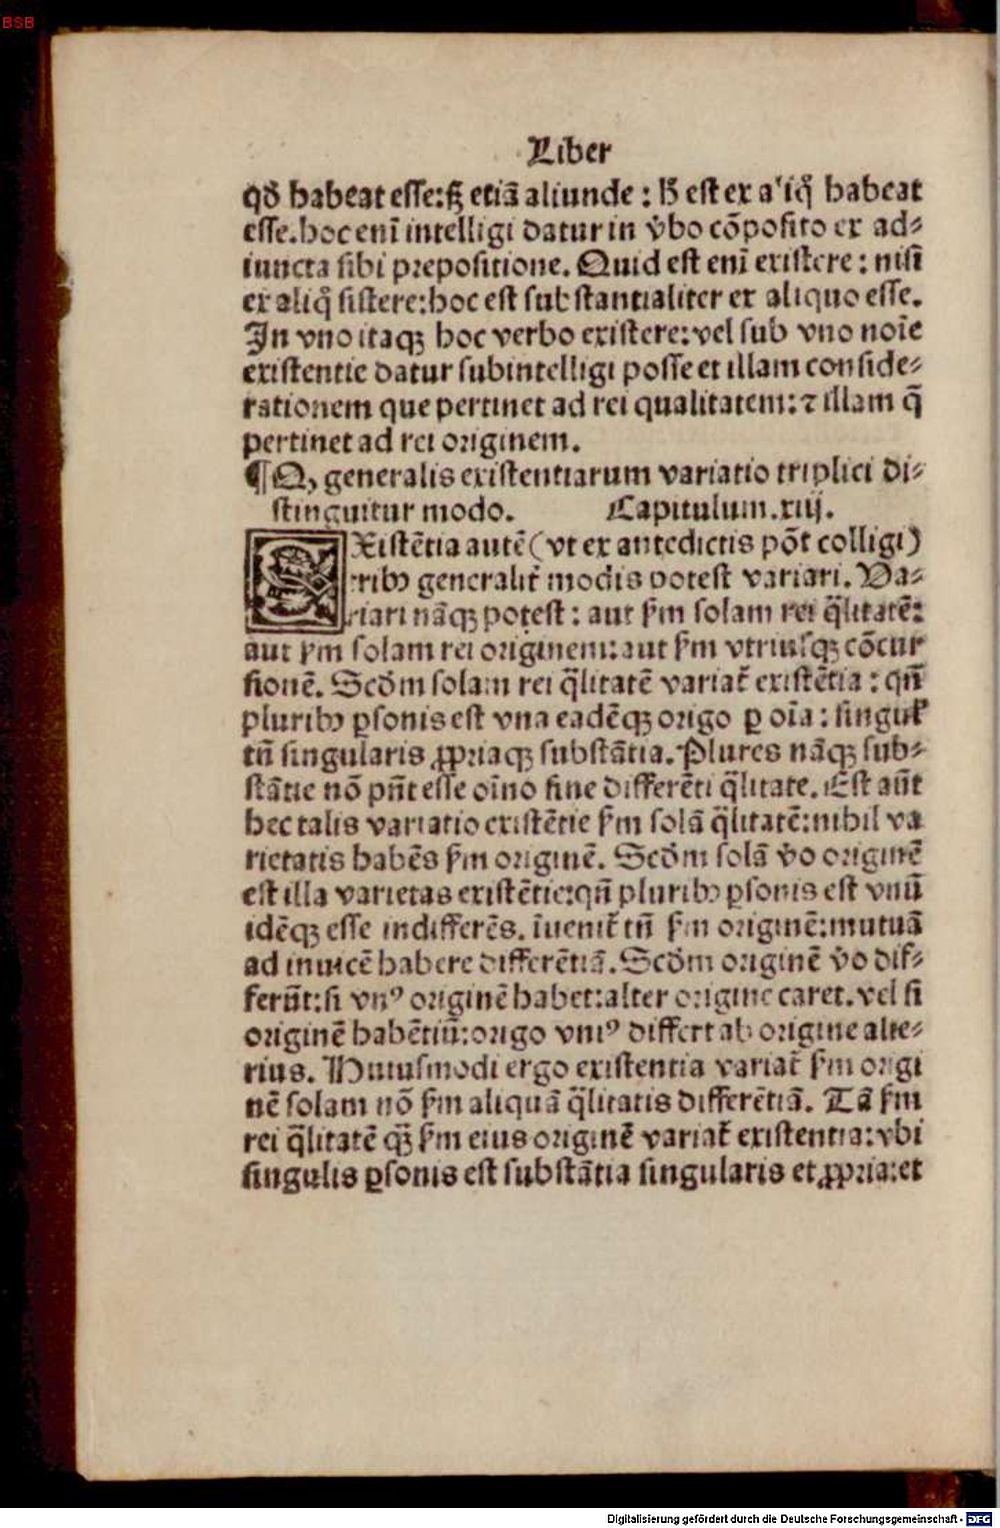 BSB
Liber
qđ habeat esse: sꝫ etiã aliunde: hͦ est ex aliq̃ habeat
esse. hoc enĩ intelligi datur in v̾bo cõposito ex ad⸗
iuncta sibi prepositione. Quid est enĩ existere: nisi
ex aliq̃ sistere: hoc est substantialiter ex aliquo esse.
In vno itaqꝫ hoc verbo existere: vel sub vno noĩe
existentie datur subintelligi posse et illam conside⸗
rationem que pertinet ad rei qualitatem: ⁊ illam q̃
pertinet ad rei originem.
¶ Q̛ generalis existentiarum variatio triplici di⸗
stinguitur modo. Capitulum. xiij.
EXistẽtia autẽ (vt ex antedictis põt colligi)
tribꝰ generalit̃ modis potest variari. Va⸗
riari nãqꝫ potest: aut ẜm solam rei q̃litatẽ:
aut ẜm solam rei originem: aut ẜm vtriusqꝫ cõcur
sionẽ. Scđm solam rei q̃litatẽ variat̃ existẽtia: qñ
pluribꝰ ꝑsonis est vna eadẽqꝫ origo ꝑ oĩa: singul̃
tñ singularis ꝓpriaqꝫ substãtia. Plures nãqꝫ sub⸗
stãtie nõ pñt esse oĩno sine differẽti q̃litate. Est aũt
hec talis variatio existẽtie ẜm solã q̃litatẽ: nihil va
rietatis habẽs ẜm originẽ. Scđm solã v̾o originẽ
est illa varietas existẽtie: qñ pluribꝰ ꝑsonis est vnũ
idẽqꝫ esse indifferẽs. ĩuenit̃ tñ ẜm originẽ: mutuã
ad inuicẽ habere differẽtiã. Scđm originẽ v̾o dif⸗
ferũt: si vnꝰ originẽ habet: alter origine caret. vel si
originẽ habẽtiũ: origo vniꝰ differt ab origine alte⸗
rius. Huiusmodi ergo existentia variat̃ ẜm origi
nẽ solam nõ ẜm aliquã q̃litatis differẽtiã. Tã ẜm
rei q̃litatẽ qꝫ̃ ẜm eius originẽ variat̃ existentia: vbi
singulis ꝑsonis est substãtia singularis et ꝓpria: et
Digitalisierung gefördert durch die Deutsche Forschungsgemeinschaft - DFG